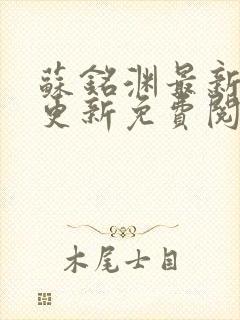 蘇銘淵最新
更新免費閱
木尾士目